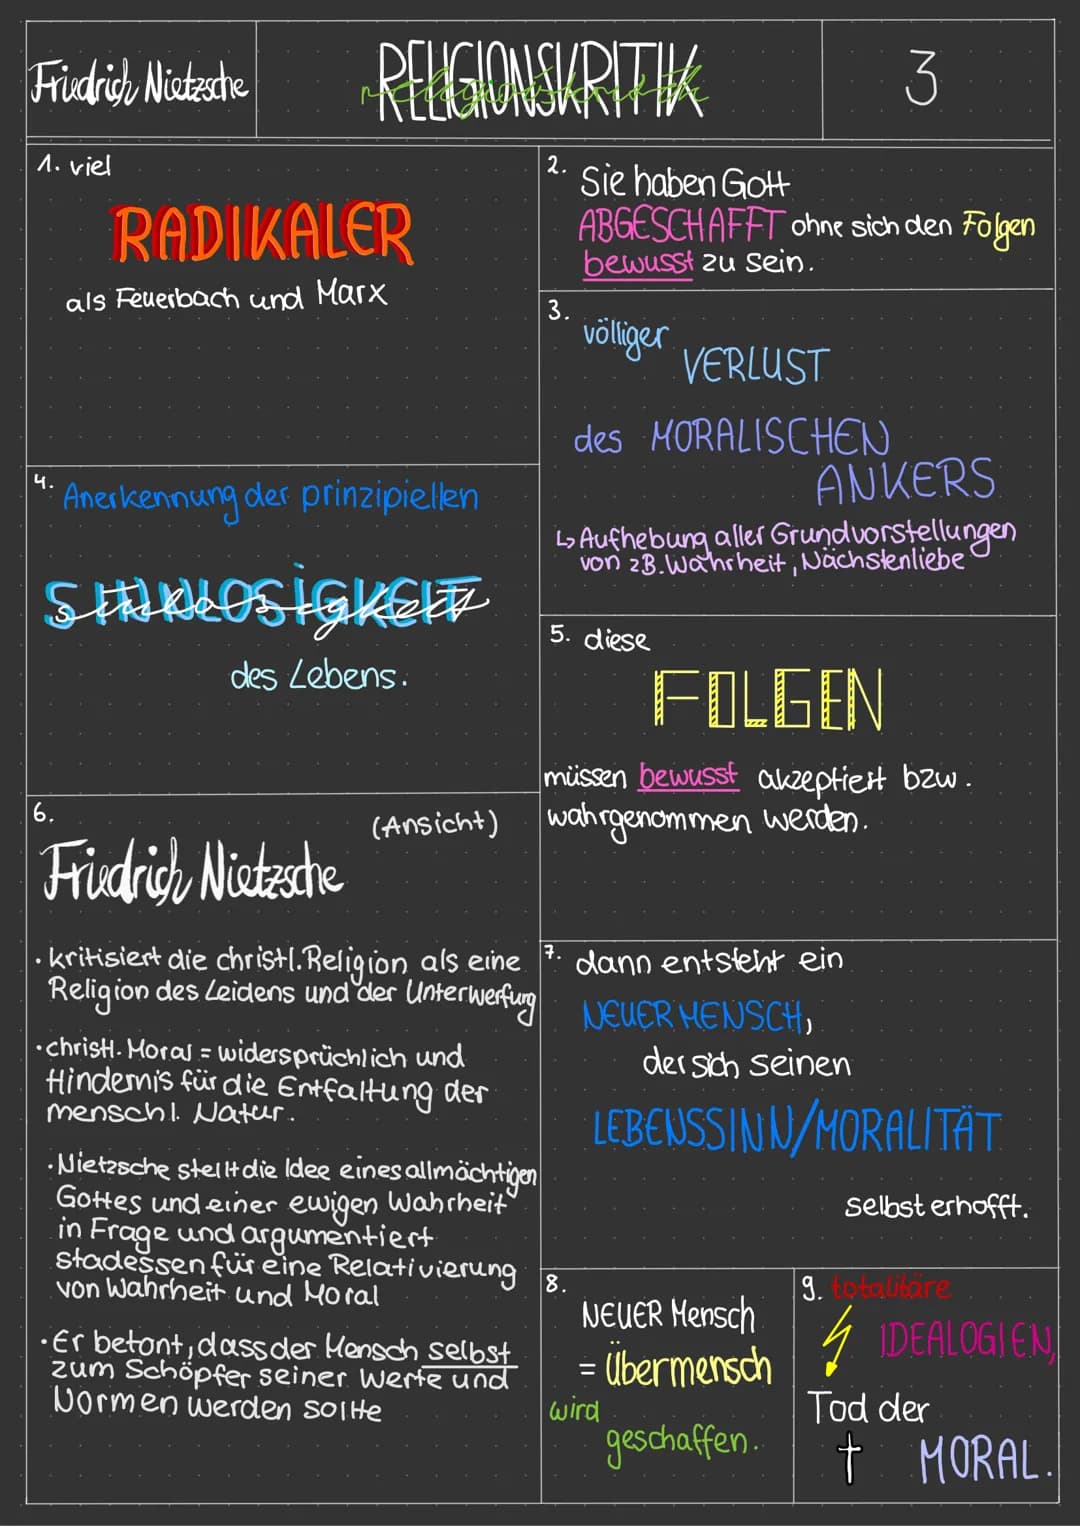 Friedrich Nietzsche
RELIGIONSKRITIK
religionskritik
3
1. viel
RADIKALER
als Feuerbach und Marx
2. Sie haben Gott
ABGESCHAFFT ohne sich den Folgen
bewusst zu sein.
3. völliger
VERLUST
des MORALISCHEN
ANKERS
↳ Aufhebung aller Grundvorstellungen
von zB. Wahrheit, Nächstenliebe
4. Anerkennung der prinzipiellen
SINNLOSIGKEIT
des Lebens.
5. diese
FOLGEN
müssen bewusst akzeptiert bzw.
wahrgenommen werden.
6.
(Ansicht)
Friedrich Nietzsche
• kritisiert die christl. Religion als eine
Religion des Leidens und der Unterwerfung
• christl. Moral = widersprüchlich und
Hindernis für die Entfaltung der
menschl. Natur.
• Nietzsche stellt die Idee eines allmächtigen
Gottes und einer ewigen Wahrheit
in Frage und argumentiert
stadessen für eine Relativierung
von Wahrheit und Moral
• Er betont, dass der Mensch selbst
zum Schöpfer seiner Werte und
Normen werden sollte
7. dann entsteht ein
NEUER MENSCH,
der sich seinen
LEBENSSINN/MORALITÄT
selbst erhofft.
8.
NEUER Mensch
= Übermensch
wird
geschaffen.
9. totalitäre
IDEALOGIEN,
Tod der
MORAL.